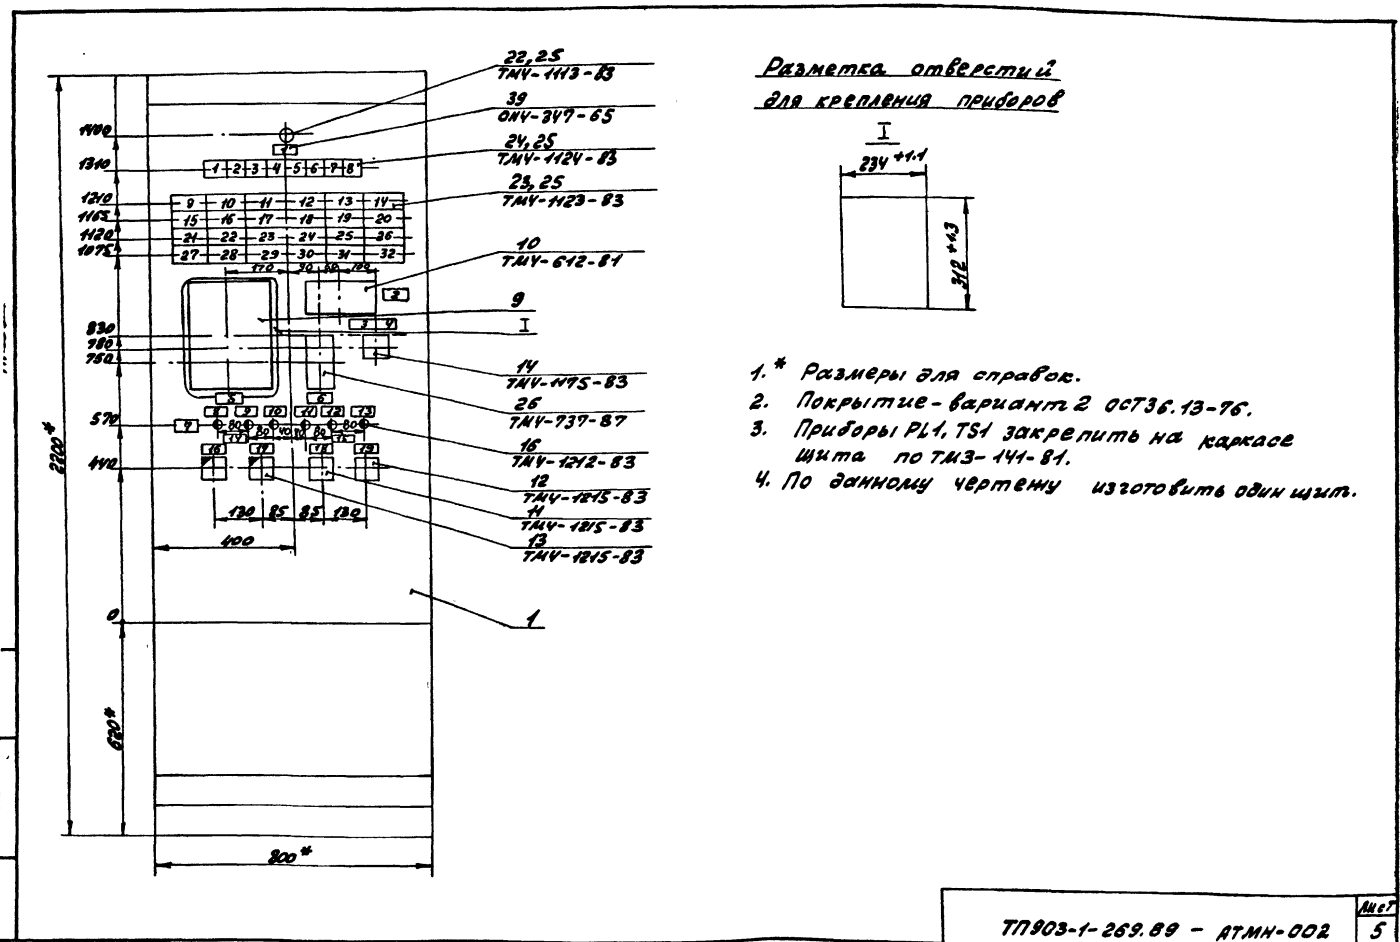 22,25
ТМ4-1113-83
39
ОН4-347-65
24,25
ТМ4-1124-83
23,25
ТМ4-1123-83
10
ТМ4-612-81
9
I
14
ТМ4-1175-83
26
ТМ4-737-87
16
ТМ4-1212-83
12
ТМ4-1215-83
11
ТМ4-1215-83
13
ТМ4-1215-83
1
1400
1310
1210
1165
1120
1075
830
780
750
570
440
0
2200*
620*
800*
1 2 3 4 5 6 7 8
9 10 11 12 13 14
15 16 17 18 19 20
21 22 23 24 25 26
27 28 29 30 31 32
170 90 60 100
3 4
5 6
8 9 10 11 12 13
7
80 80 40 40 80 80
16 17 18 19
130 85 85 130
400
Разметка отверстий
для крепления приборов
I
234 +1.1
312 +1.3
1.* Размеры для справок.
2. Покрытие-вариант 2 ОСТ36.13-76.
3. Приборы PL1, TS1 закрепить на каркасе
щита по ТМ3-141-81.
4. По данному чертежу изготовить один щит.
ТП903-1-269.89 - АТМН-002
Лист
5